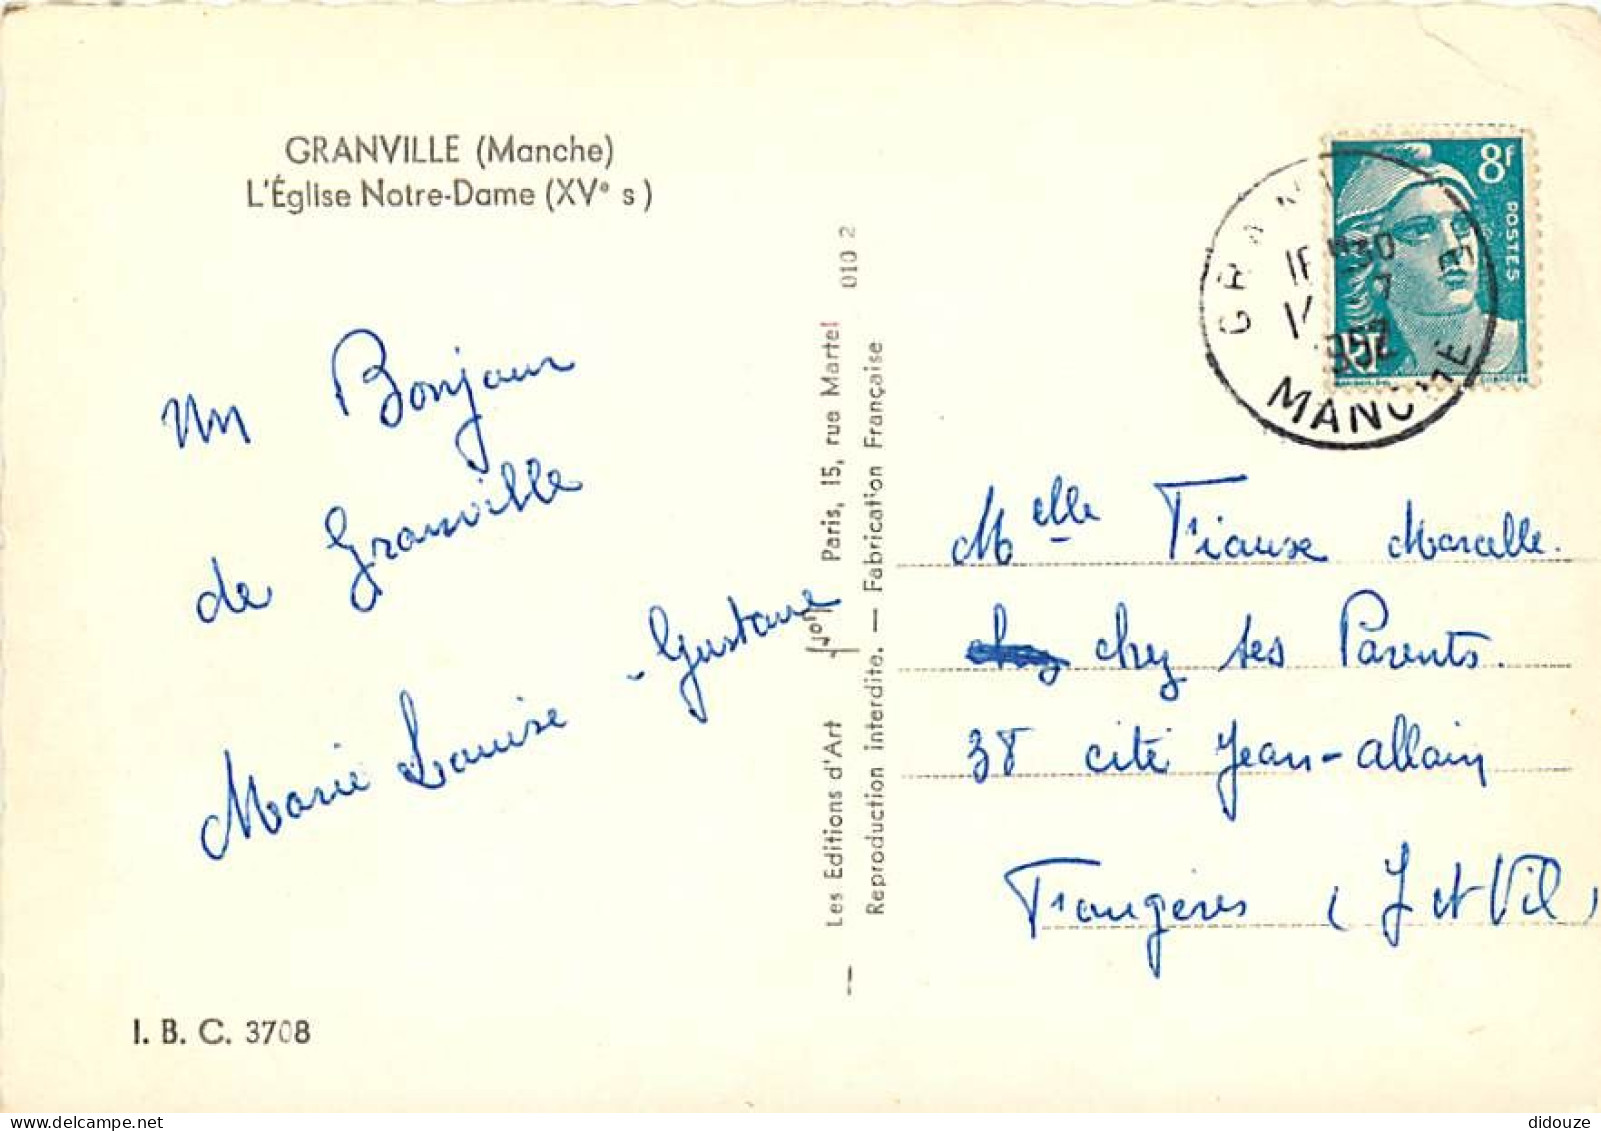 GRANVILLE (Manche)
L'Église Notre-Dame (XVe s)
un Bonjour
de Granville
Marie Louise - Gustave
I. B. C. 3708
Les Editions d'Art "Yvon" Paris, 15, rue Martel 010 2
Reproduction interdite. — Fabrication Française
8f
POSTES
MANCHE
1952
Melle Marcelle.
chez ses Parents.
38 cité Jean-Allain
Fougères (I et Vil)
didouze